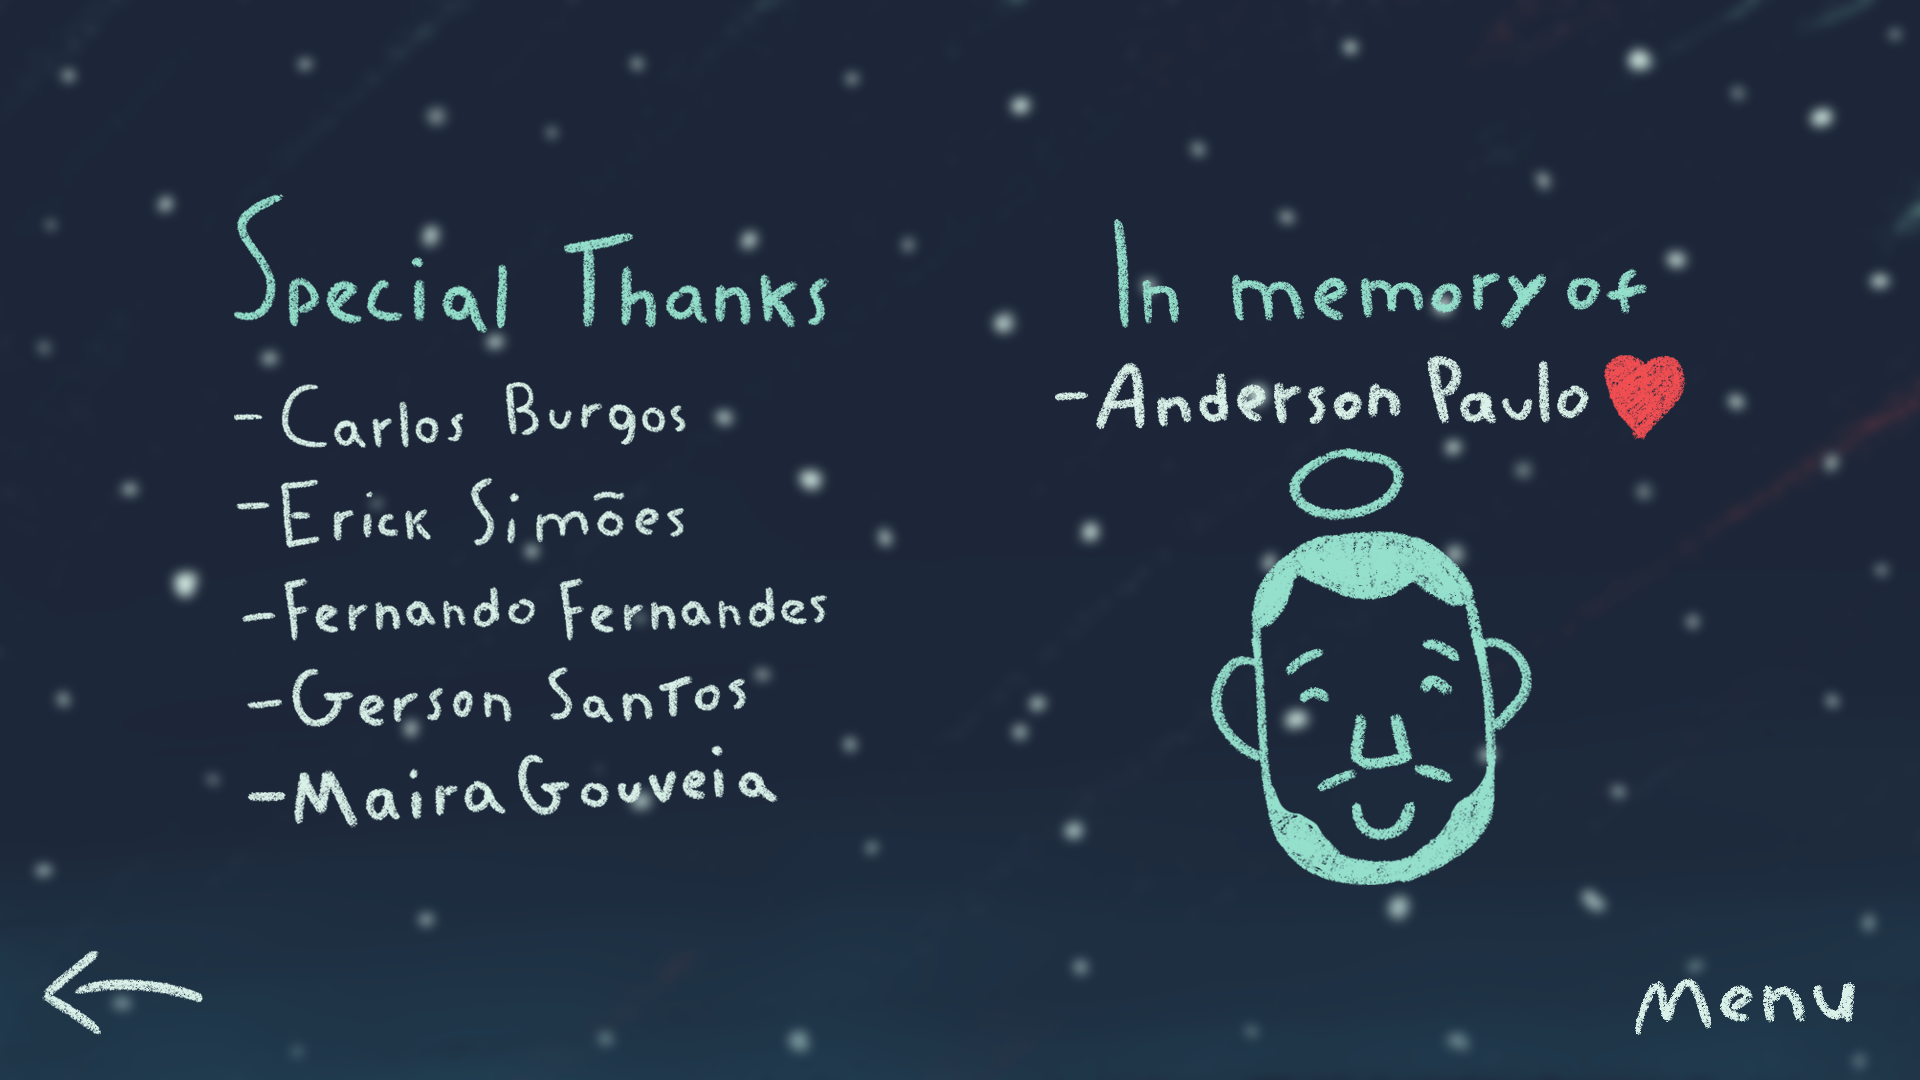 Special Thanks
- Carlos Burgos
- Erick Simões
- Fernando Fernandes
- Gerson Santos
- Maira Gouveia
In memory of
- Anderson Paulo
Menu